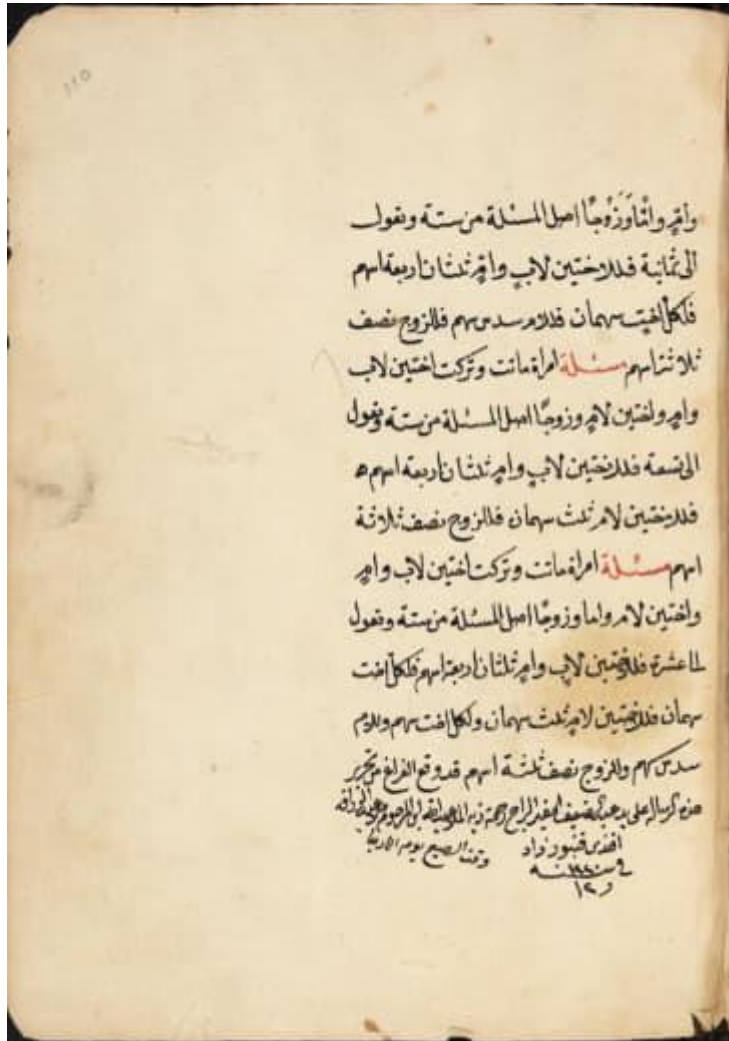 ١١٥
وامٍ وامًّا وَزَوْجًا اصل المسئلة من ستة وتعول
الى ثمانية فللاختين لابٍ وامٍ ثلثان اربعة اسهم
فلكل اخت سهمان فللام سدس سهم فللزوج نصف
ثلاثة اسهم مسئلة امراة ماتت وتركت اختين لاب
وامٍ واختين لامٍ وزوجًا اصل المسئلة من ستة وتعول
الى تسعة فللاختين لابٍ وامٍ ثلثان اربعة اسهم ه
فللاختين لام ثلث سهمان فللزوج نصف ثلاثة
اسهم مسئلة امراة ماتت وتركت اختين لاب وامٍ
واختين لام واما وزوجًا اصل المسئلة من ستة وتعول
الى عشرة فللاختين لابٍ وامٍ ثلثان اربعة اسهم فلكل اخت
سهمان فللاختين لامٍ ثلث سهمان ولكل اخت سهم وللام
سدس سهم وللزوج نصف ثلثة اسهم قد وقع الفراغ من تحرير
هذه الرساله على يد عبد الضعيف الراجى رحمة ربه ابن المرحوم
افندى وقت الصبح يوم الاربعا
فى سنه